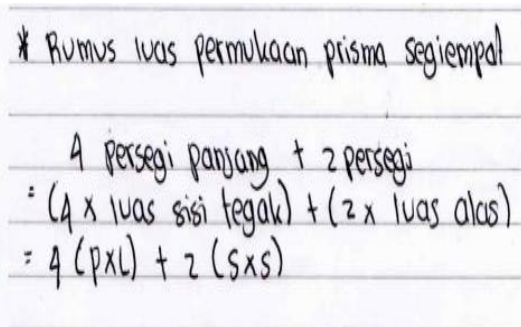 * Rumus luas permukaan prisma segiempat
4 persegi panjang + 2 persegi
= (4 x luas sisi tegak) + (2 x luas alas)
= 4 (PxL) + 2 (SxS)